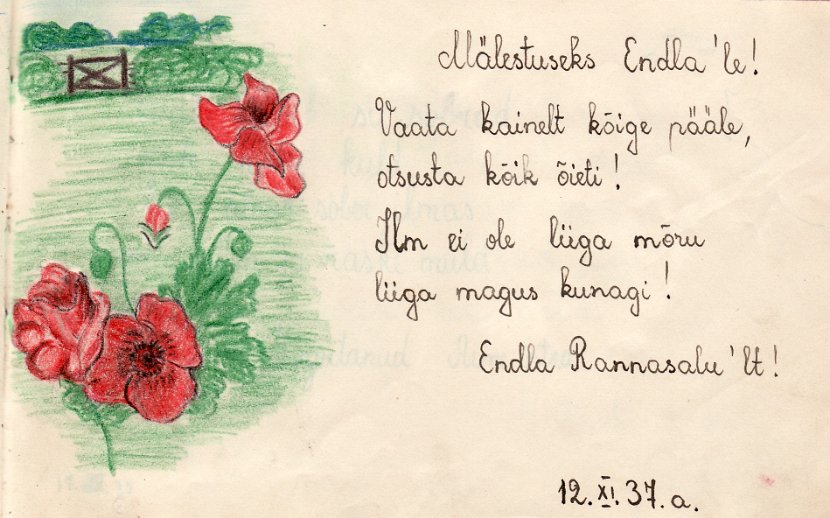 Mälestuseks Endla'le!
Vaata kainelt kõige pääle,
otsusta kõik õieti!
Ilm ei ole liiga mõru
liiga magus kunagi!
Endla Rannasalu'lt!
12.XI.37.a.